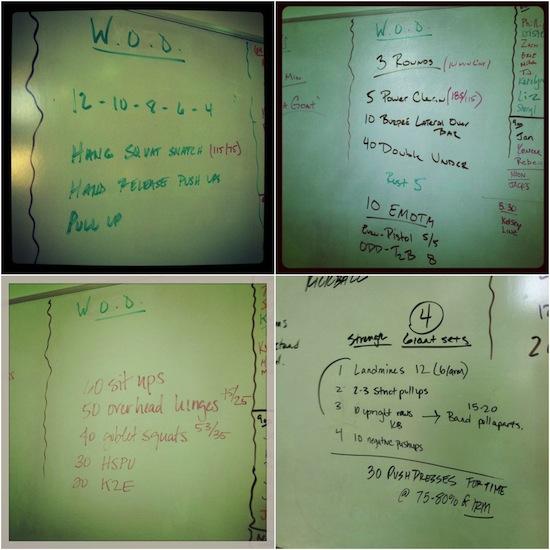 W.O.D.
12 - 10 - 8 - 6 - 4
HANG SQUAT SNATCH (115/75)
HAND RELEASE PUSH UPS
PULL UP
W.O.D.
3 ROUNDS
5 POWER CLEAN
10 BURPEE LATERAL OVER
BAR
40 DOUBLE UNDER
Rest 5
10 EMOTM
EVEN-PISTOL 5/5
ODD-T2B 8
Min
A GOAT
Phil
Zach
Liz
Sheryl
Jan
Rebe
NOON
JACKS
5:30
Kelsey
W.O.D.
60 sit ups
50 overhead lunges 45/25
40 goblet squats 53/35
30 HSPU
20 K2E
KICKBALL
4
Strength Giant sets
1 Landmines 12 (6/arm)
2 2-3 strict pull ups
3 10 upright rows → 15-20
KB Band pull aparts.
4 10 negative pushups
30 PUSH PRESSES FOR TIME
@ 75-80% of 1RM